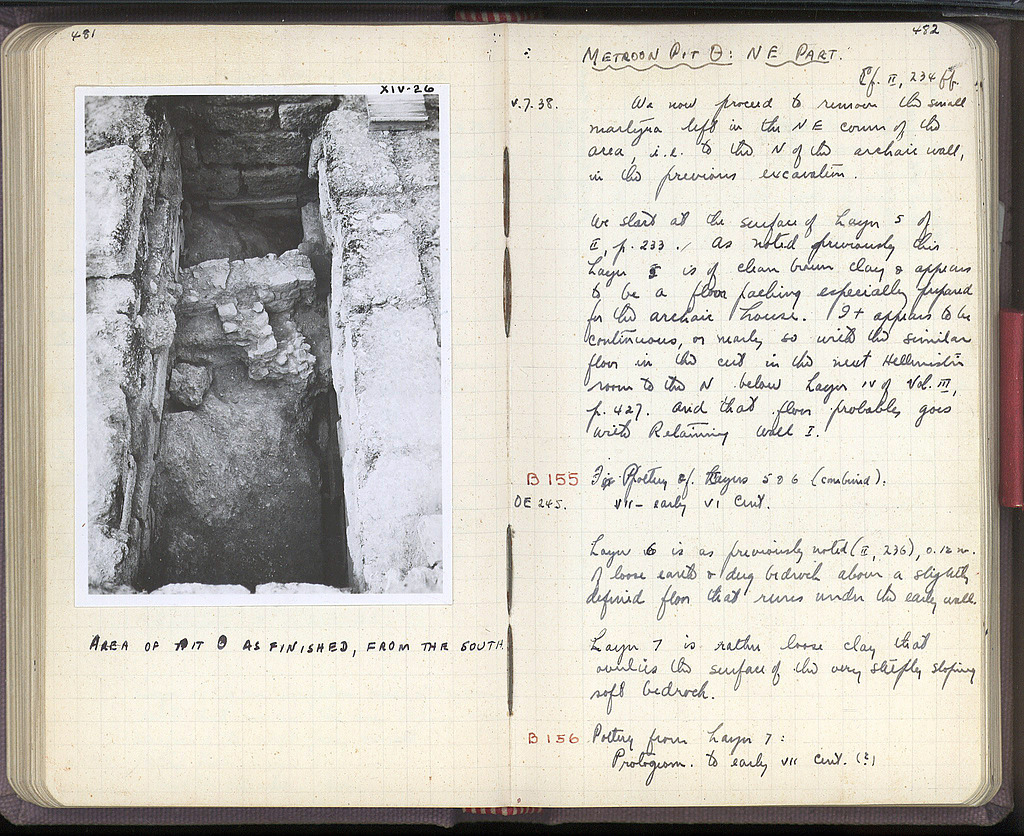 481
XIV-26
AREA OF PIT Θ AS FINISHED, FROM THE SOUTH
482
METROON PIT Θ: NE PART.
Cf. II, 234 ff.
V.7.38.
We now proceed to remove the small
martyra left in the NE corner of the
area, i.e. to the N of the archaic wall,
in the previous excavation.
We start at the surface of Layer 5 of
II, p. 233. As noted previously this
Layer 5 is of clean brown clay & appears
to be a floor packing especially prepared
for the archaic house. It appears to be
continuous, or nearly so with the similar
floor in the cut in the next Hellenistic
room to the N below Layer IV of Vol. III,
p. 427. And that floor probably goes
with Retaining Wall I.
B 155
For Pottery of Layers 5 & 6 (combined):
OE 245.
VII - early VI cent.
Layer 6 is as previously noted (II, 236), 0.12 m.
of loose earth & dug bedrock above a slightly
defined floor that runs under the early wall.
Layer 7 is rather loose clay that
overlies the surface of the very steeply sloping
soft bedrock.
B 156
Pottery from Layer 7:
Protogeom. to early VII cent. (?)